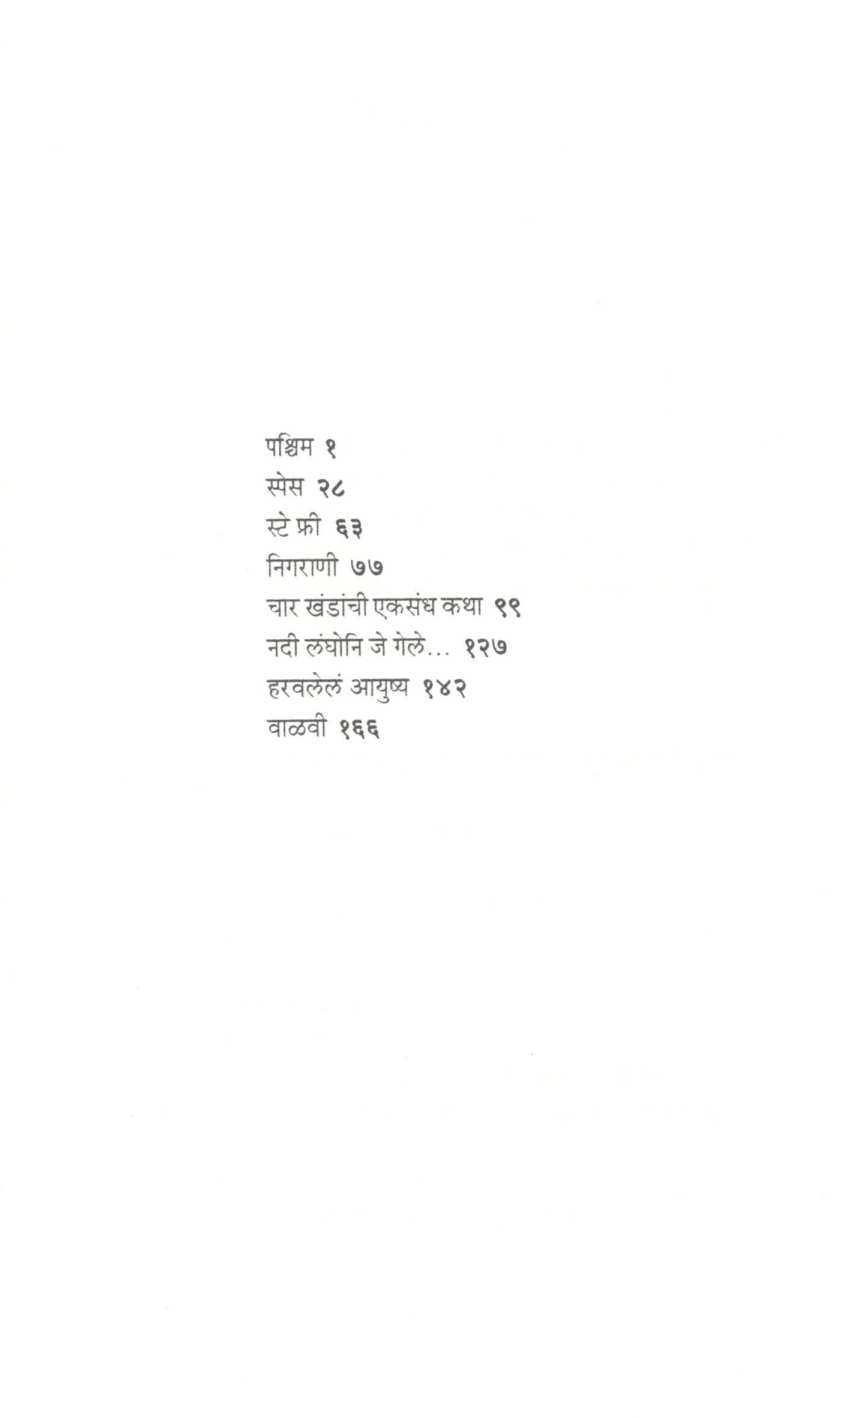 पश्चिम १
स्पेस २८
स्टे फ्री ६३
निगराणी ७७
चार खंडांची एकसंध कथा ९९
नदी लंघोनि जे गेले... १२७
हरवलेलं आयुष्य १४२
वाळवी १६६